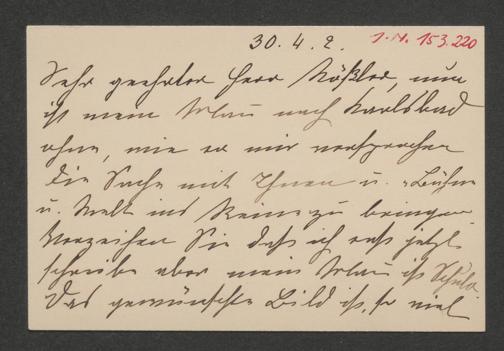 30. 4. 2. J. N. 153.220
Sehr geehrter Herr Rößler, nun
ist mein Mann nach Karlsbad
ohne, wie er mir versprochen
die Sache mit Ihnen u. "Bühne
u. Welt ins Reine zu bringen
Verzeihen Sie daß ich erst jetzt
schreibe aber mein Mann ist Schuld
Das gewünschte Bild ist, so viel